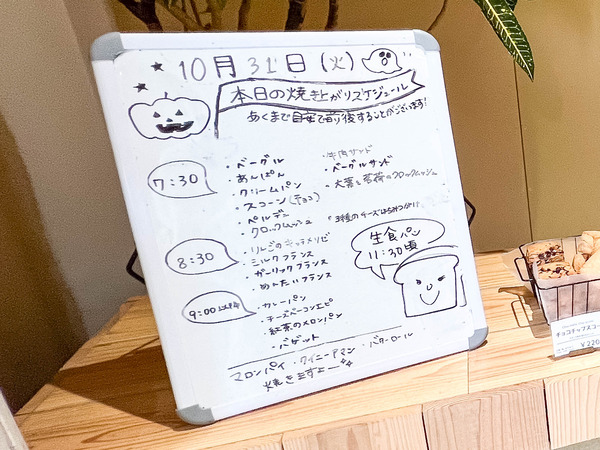 10月31日(火)
本日の焼き上がりスケジュール
あくまで目安で前後することがございます!
7:30
・ベーグル
・あんぱん
・クリームパン
・スコーン(チョコ)
・ペルデュ
・クロックムッシュ
・牛肉サンド
・ベーグルサンド
・大葉と茗荷のクロックムッシュ
8:30
・ミルクフランス
・ガーリックフランス
・めんたいフランス
9:00以降
・カレーパン
・チーズベーコンエピ
・紅茶のメロンパン
・バゲット
生食パン
11:30頃
マロンパイ・クイニーアマン・バターロール
焼きますよー
チョコチップスコー
¥220